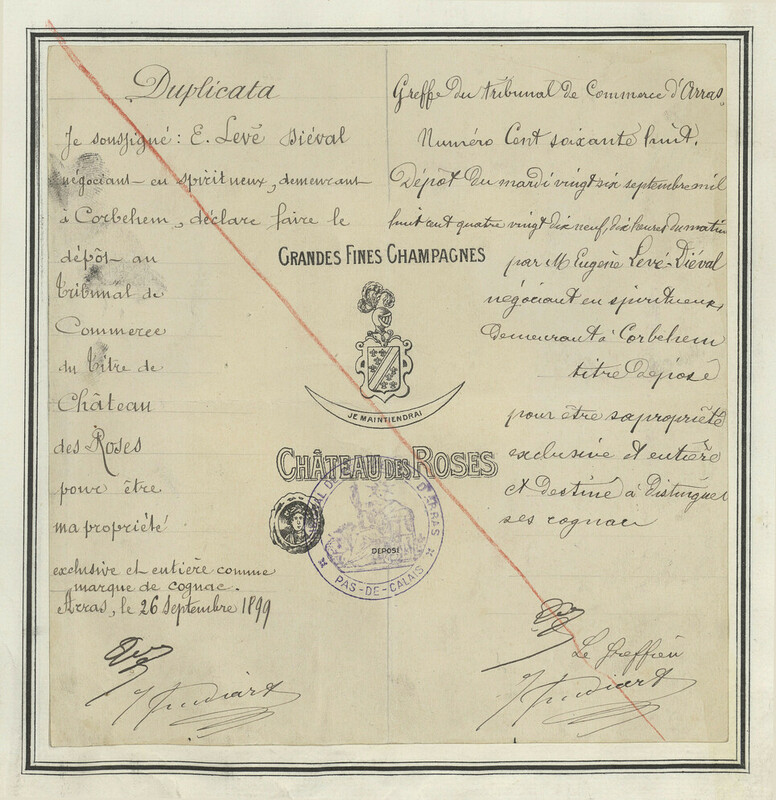 Duplicata
Je soussigné : E. Levé Diéval
négociant en spiritueux, demeurant
à Corbehem, déclare faire le
dépôt au
Tribunal de
Commerce
du titre de
Château
des Roses
pour être
ma propriété
exclusive et entière comme
marque de cognac.
Arras, le 26 Septembre 1899
GRANDES FINES CHAMPAGNES
JE MAINTIENDRAI
CHÂTEAU DES ROSES
DEPOSÉ
D'ARRAS
PAS-DE-CALAIS
Greffe du Tribunal de Commerce d'Arras
Numéro Cent soixante huit.
Dépôt du mardi vingt six septembre mil
huit cent quatre vingt dix neuf, dix heures du matin
par M Eugène Levé-Diéval
négociant en spiritueux,
demeurant à Corbehem
titre déposé
pour être sa propriété
exclusive et entière
et destiné à distinguer
ses cognac
Le Greffier